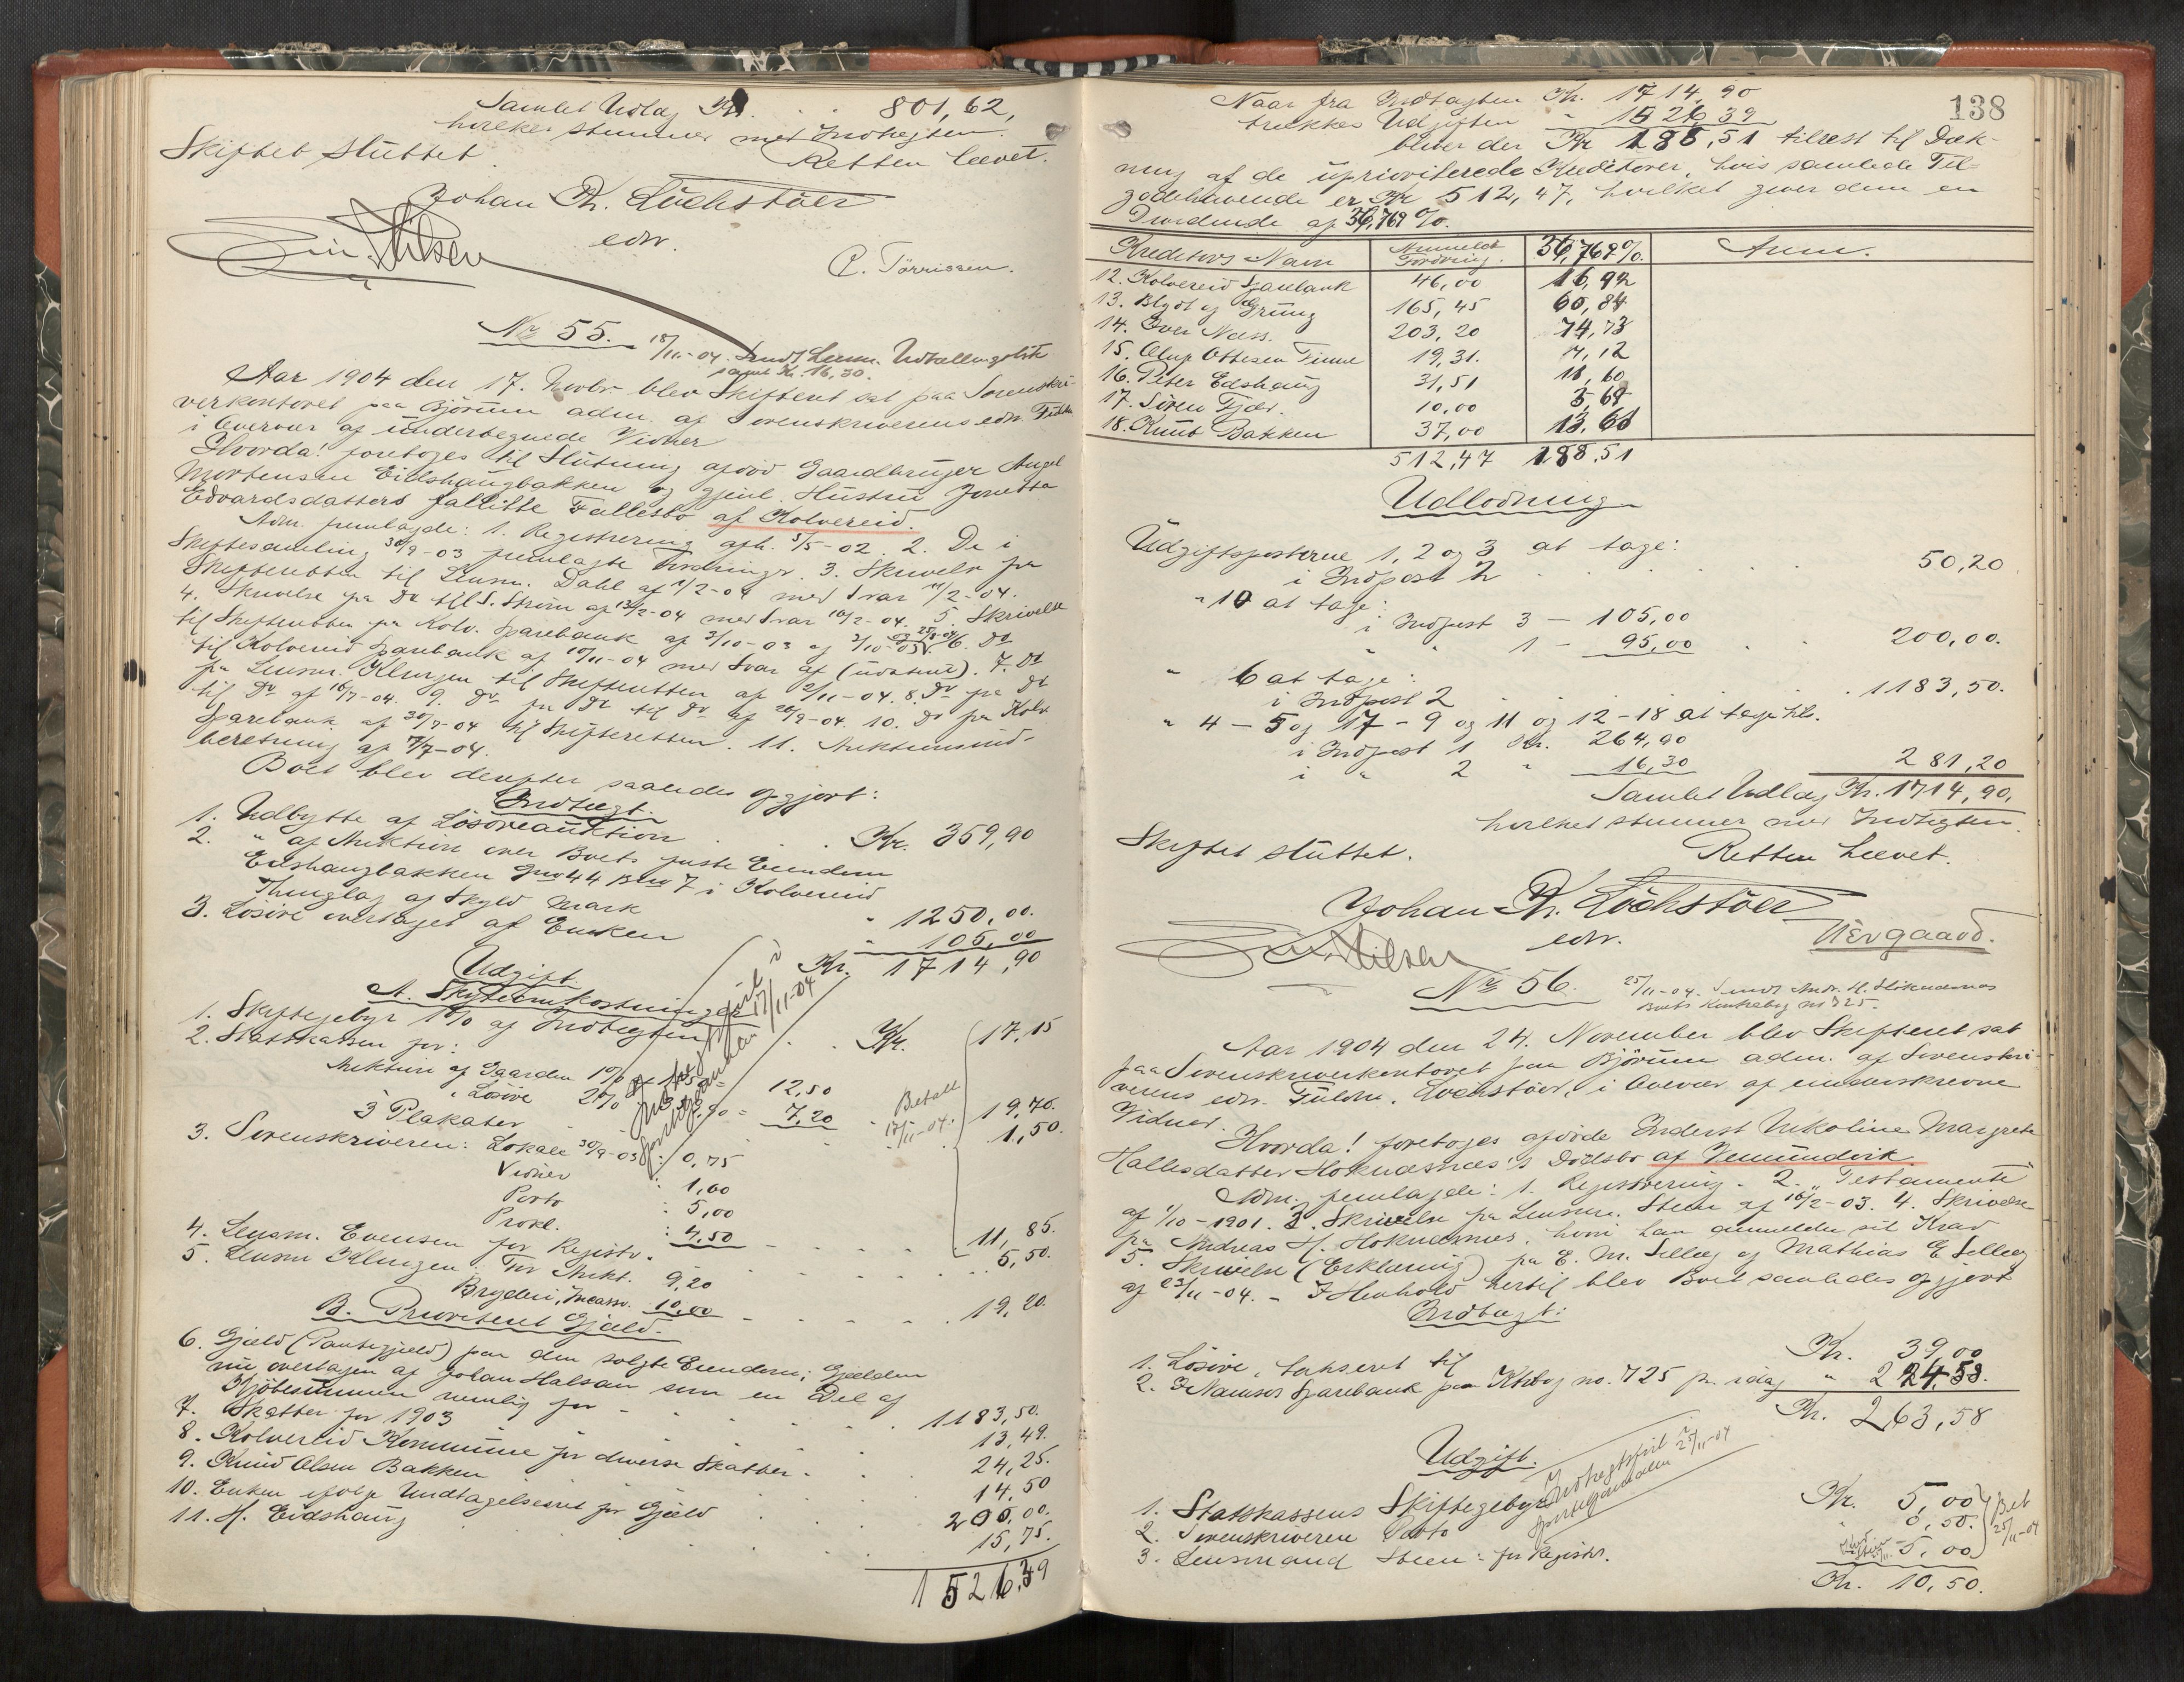 Samlet Udlæg Kr. . . 801,62,
hvilket stemmer med Indtægten.
Skiftet sluttet. Retten hævet.
Johan Th. Lüchstöer
edv.
Nilsen
P. Törrissen.
No 55. 18/11-04. Sendt Lensm. Udtællingsliste
samt Kr. 16,30.
Aar 1904 den 17. Novbr. blev Skifteret sat paa Sorenskri-
verkontoret paa Björum adm. af Sorenskriverens edv. Fuldm.
i Overvær af underbegnede Vidner
Hvorda! foretoges til Slutning afdöd Gaardbruger Angel
Mortensen Eidshaugbakken og gjenl. Hustru Jonetta
Edvardsdatters fallitte Fællesbo af Kolvereid.
Adm. fremlagde: 1. Registrering afh. 5/5-02. 2. De i
Skiftesamling 30/9-03 fremlagte Fordringer. 3. Skrivelse fra
Skifteretten til Lensm. Dahl af 1/2-04 med Svar 11/2-04.
4. Skrivelse fra Do til S. Strøm af 13/2-04 med Svar 16/2-04. 5. Skrivelse
til Skifteretten fra Kolv. Sparebank af 3/10-03 og 3/10-03 6. Do
til Kolvereid Sparebank af 10/11-04 med Svar af (udateret). 7. Do
fra Lensm. Klingen til Skifteretten af 2/11-04. 8. Do fra Do
til Do af 16/7-04. 9. Do fra Do til Do af 26/9-04. 10. Do fra Kolv.
Sparebank af 30/9-04 til Skifteretten. 11. Auktionsind-
beretning af 7/7-04.
Boet blev derefter saaledes opgjort:
Indtægt.
1. Udbytte af Lösöreauktion . . . Kr. 359,90
2. " af Auktion over Boets faste Eiendom
Eidshaugbakken Gno 44 Bno 7 i Kolvereid
Thinglag af Skyld Mark " 1250,00.
3. Lösöre overtaget af Enken " 105,00
Kr. 1714,90
Udgift.
A. Skifteomkostninger
1. Skiftegebyr 1% af Indtægten . . Kr. 17,15
2. Statskassen for:
Auktion af Gaarden 1% = 12,50
" Lösöre 2% = 7,20 19,70.
3 Plakater 1,50.
Betalt
17/11-04.
Indtægtsfört i
Sporteljournalen 17/11-04
3. Sorenskriveren: Lokale 30/9-03: 0,75
Vidner : 1,00
Porto : 5,00
Prokl. : 4,50 11,85.
4. Lensm. Evensen for Registr. 5,50.
5. Lensm Klingen: For Aukt. 9,20
Bryderi, Incasso. 10,00 19,20.
B. Prioriteret Gjæld.
6. Gjæld (Pantegjeld) paa den solgte Eiendom; Gjælden
nu overtagen af Johan Halsan som en Del af
Kjöbesummen nemlig for 1183,50.
7. Skatter for 1903 13,49.
8. Kolvereid Kommune for diverse Skatter. 24,25.
9. Knud Olsen Bakken 14,50
10. Enken ifølge Undtagelsesret for Gjæld 200,00.
11. H. Eidshaug 15,75.
1526,39
138
Naar fra Indtægten Kr. 1714,90
trækkes Udgiften " 1526,39
bliver der Kr 188,51 tilrest til Dæk-
ning af de uprioriterede Kreditorer, hvis samlede Til-
godehavende er Kr 512,47, hvilket giver dem en
Dividende af 36,769%.
Kreditors Navn Anmeldt Fordring. 36,769% Anm.
12. Kolvereid Sparebank 46,00 16,92
13. Blydt og Grung 165,45 60,84
14. Iver Næss. 203,20 74,73
15. Oluf Ottesen Finne 19,31. 7,12
16. Peter Edshaug 31,51 11,60
17. Sören Fjær. 10,00 3,69
18. Knut Bakken 37,00 13,61
512,47 188,51
Udlodning
Udgiftsposterne 1, 2 og 3 at tage:
i Indpost 2 . . . . . 50,20
" 10 at tage:
i Indpost 3 - 105,00
" " 1 - 95,00 . . 200,00.
" 6 at tage:
i Indpost 2 . . . . 1183,50.
" 4 - 5 og 7 - 9 og 11 og 12-18 at tages til.
i Indpost 1 Kr. 264,90
i " 2 " 16,30 281,20
Samlet Udlæg Kr. 1714,90,
hvilket stemmer med Indtægten.
Skiftet sluttet. Retten hævet.
Johan Th. Lüchstöer
edv.
Nilsen
Aergaard.
No 56. 25/11-04. Sendt Andr. H. Höknesnes
Boets Kontrabog no 725.
Aar 1904 den 24. November blev Skifteret sat
paa Sorenskriverkontoret paa Björum adm. af Sorenskri-
verens edv. Fuldm. Lochstöer, i Overvær af underskrevne
Vidner.
Hvorda! foretoges afdöde Enderst Nikoline Margrete
Hallesdatter Höknesnes's Dödsbo af Vemundvik.
Adm. fremlagde: 1. Registrering. 2. "Testamente"
af 1/10-1901. 3. Skrivelse fra Lensm. Steen af 16/2-03. 4. Skrivelse
fra Andreas H. Höknesnes, hvori han anmelder sit Krav
5. Skrivelse (Erklæring) fra E. M. Selleg og Mathias E Selleg
af 23/11-04. - I Henhold hertil blev Boet saaledes opgjort
Indtægt:
1. Lösöre, takseret til Kr. 39,00
2. I Namsos Sparebank paa Kbog no. 725 pr. idag " 224,58.
Kr. 263,58
Udgift.
Indtægtsfört i
Sporteljournalen 25/11-04
1. Statskassens Skiftegebyr Kr. 5,00
2. Sorenskriveren Porto " 0,50.
Bet
25/11-04
3. Lensmand Steen: for Registr. 5,00
Kr. 10,50.